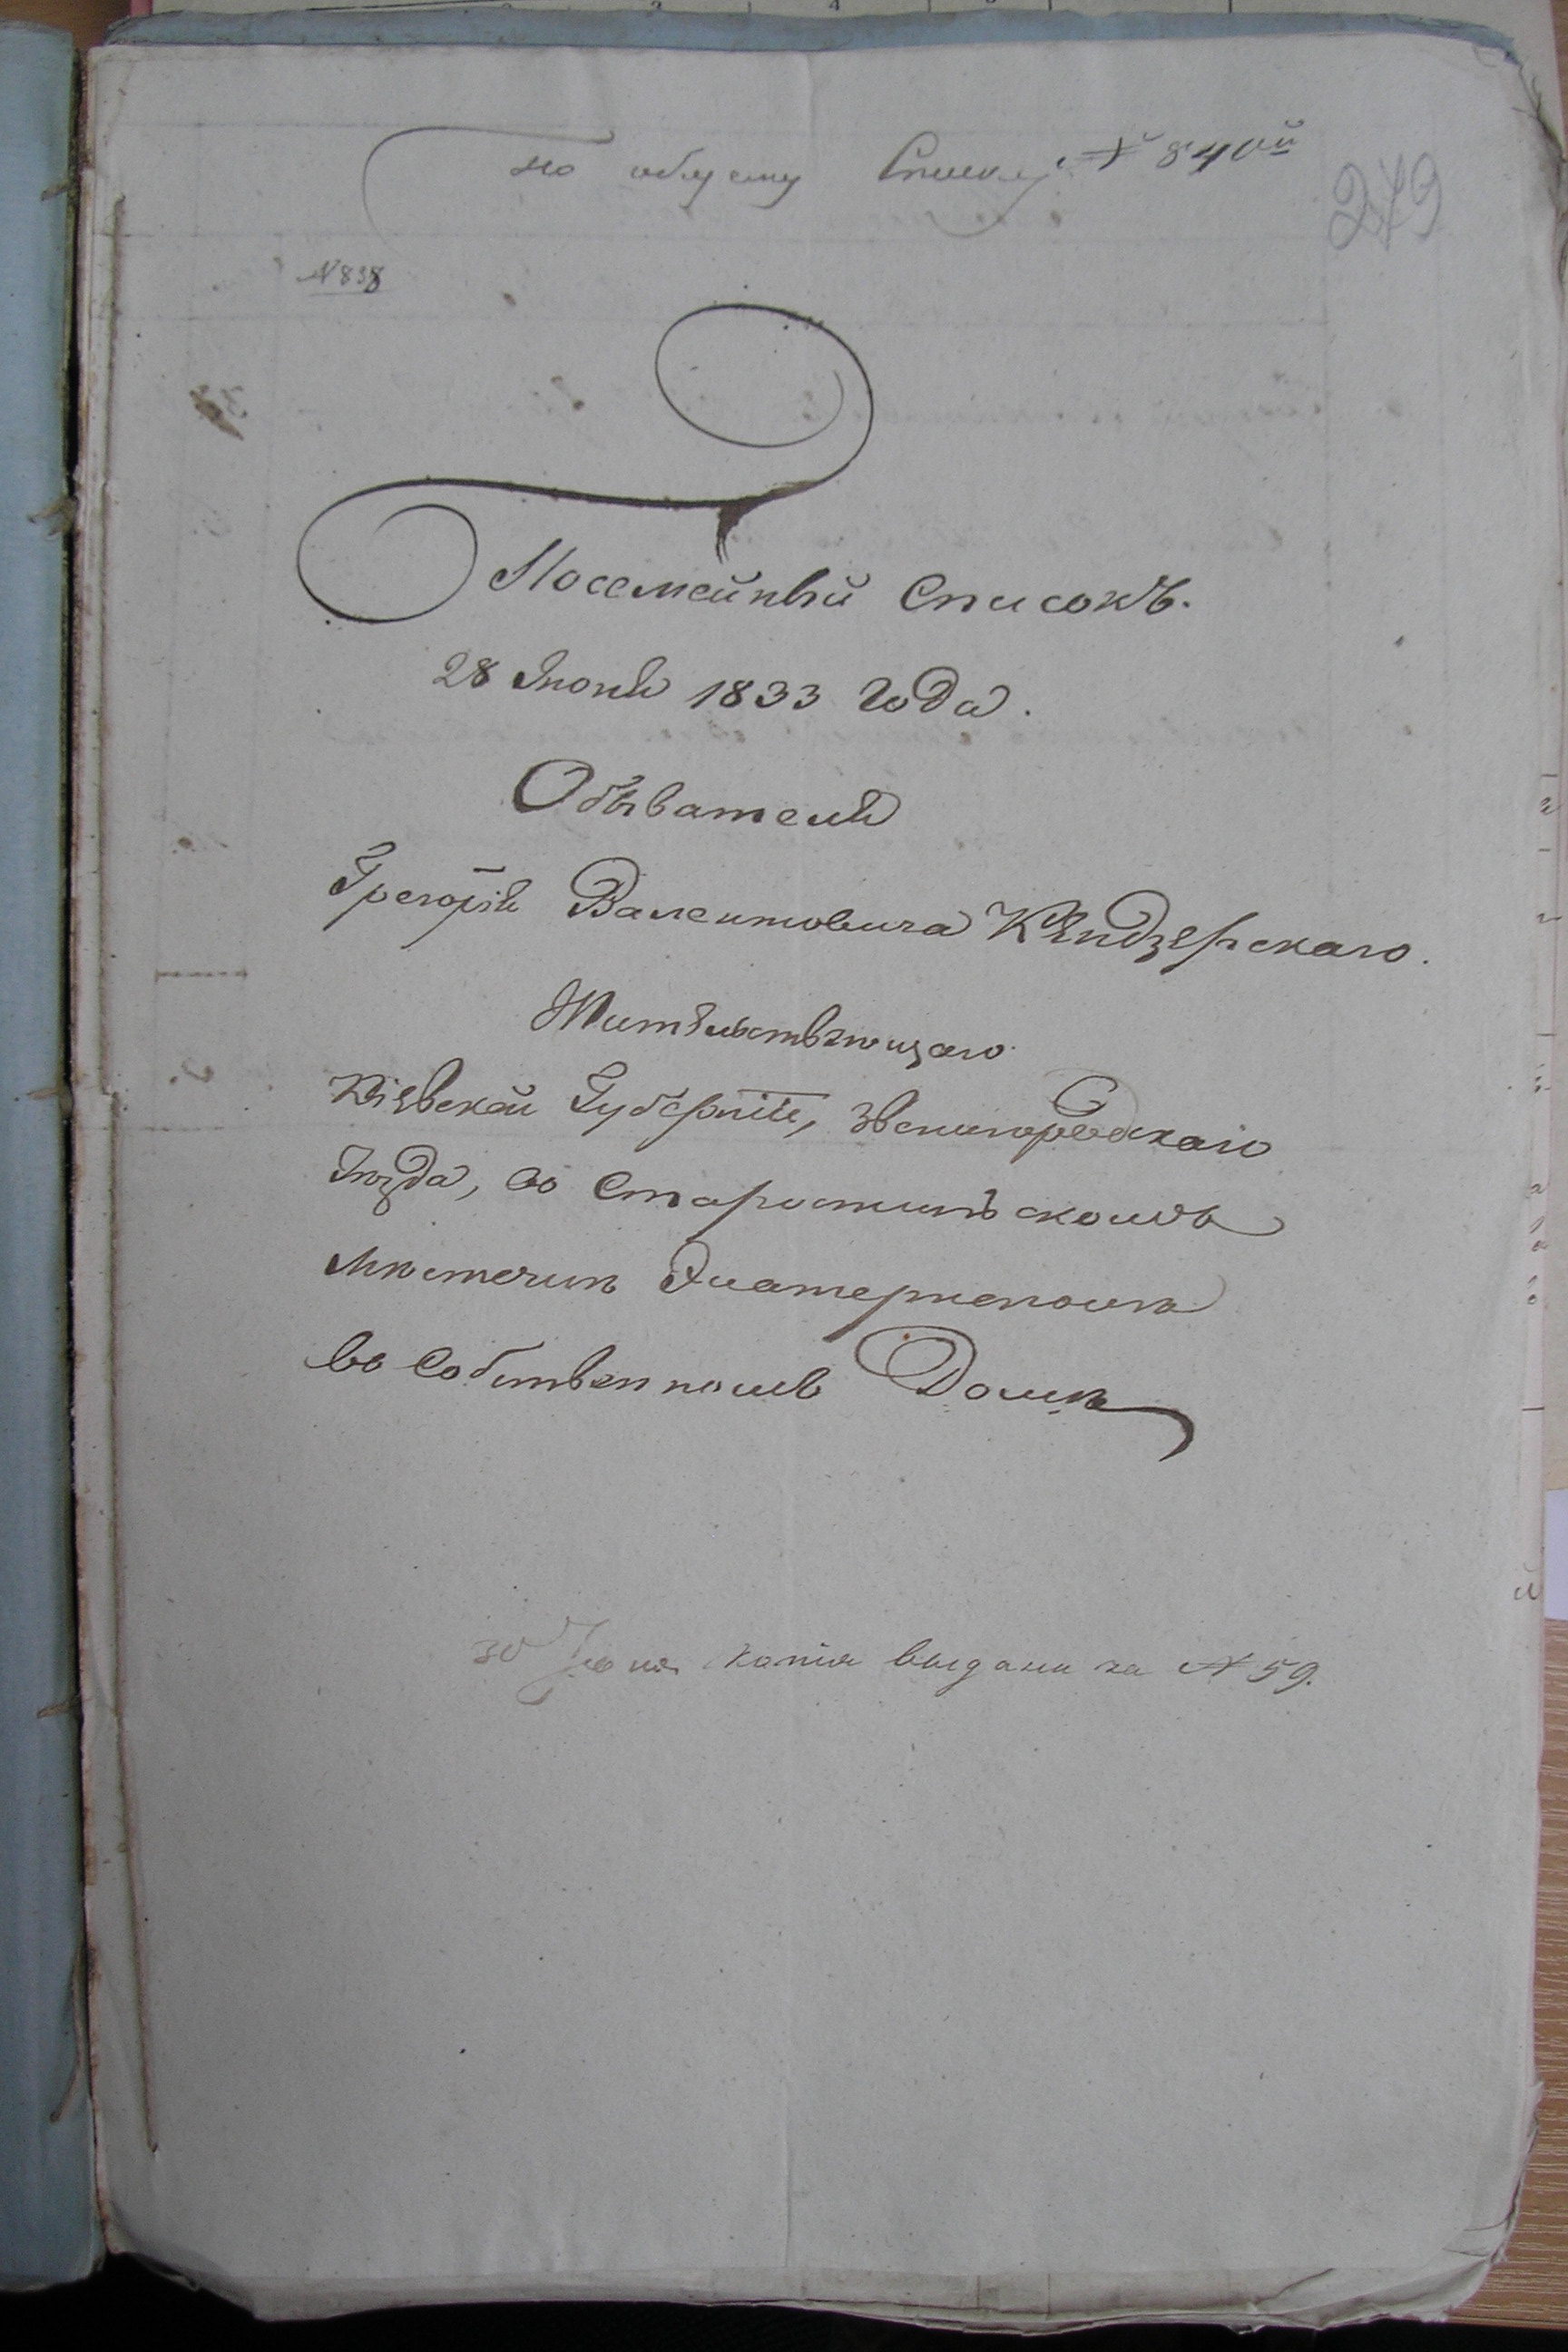 по общему Списку № 840й
279
№ 838
Посемейный Списокъ.
28 Июня 1833 Года.
Обывателя
Грегорія Валентовича Кендзерскаго.
Жительствующаго
Кіевской Губерніи, Звенигородскаго
Уѣзда, во Старостинскомъ
Мѣстечкѣ Екатеринополѣ
во Собственномъ Домѣ
30 Июня копія выдана за № 59.